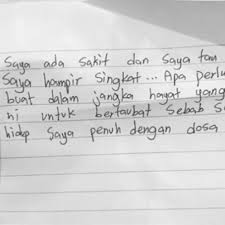 Saya ada sakit dan saya tau
Saya hampir singkat... Apa perlu
buat dalam jangka hayat yang
ni untuk bertaubat sebab s
hidup saya penuh dengan dosa